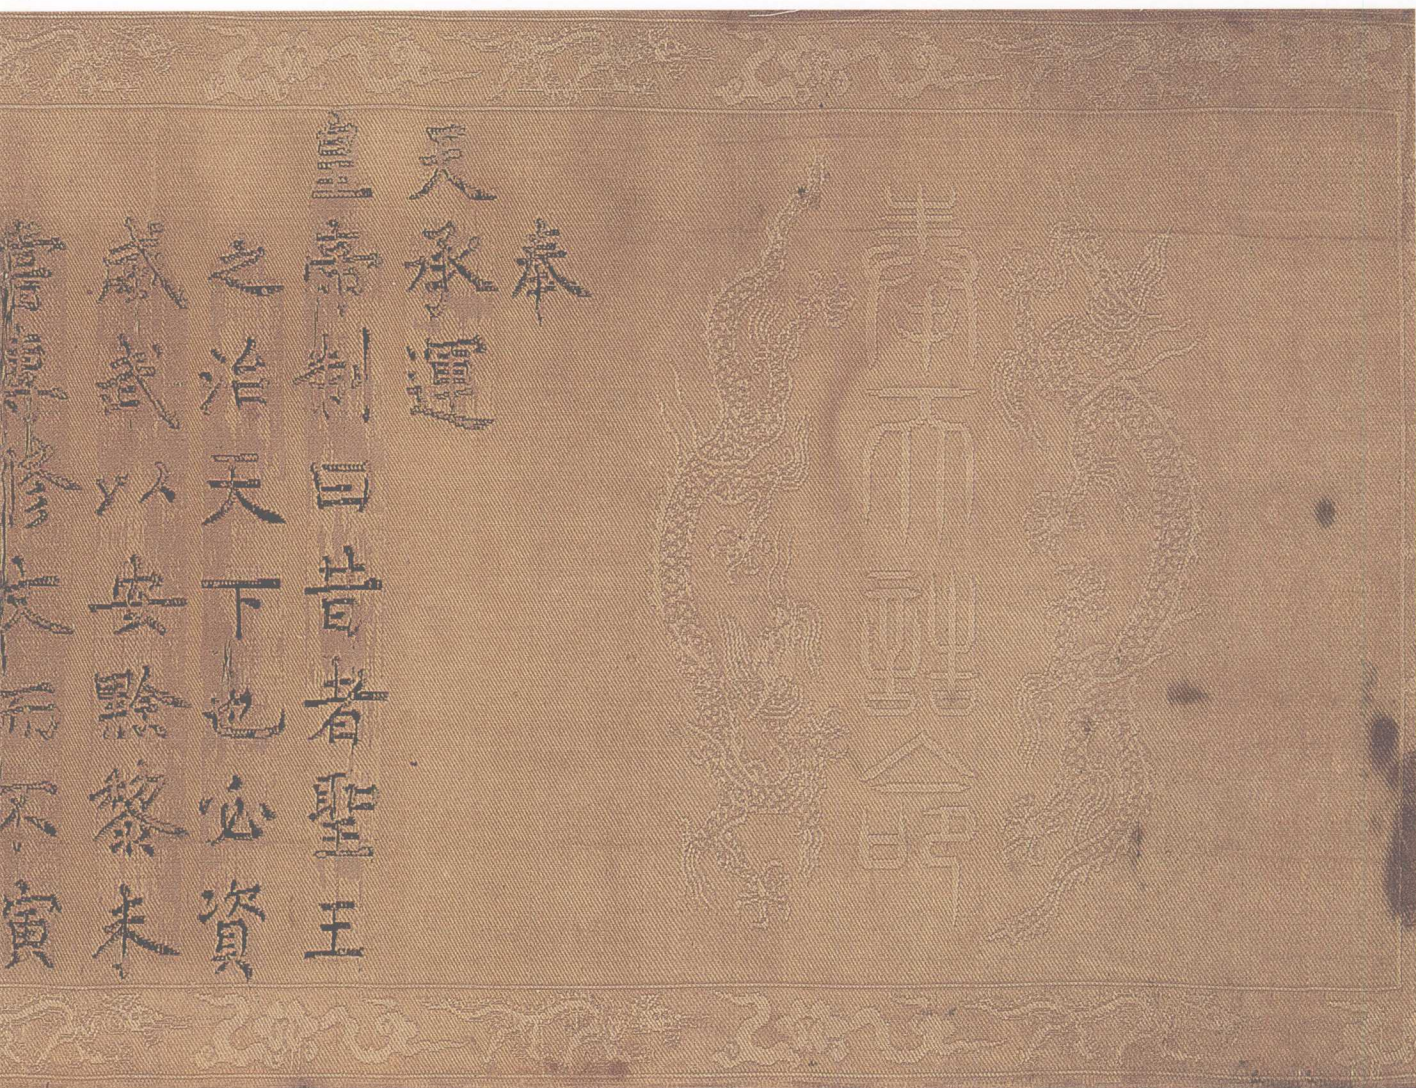 奉天誥命
奉
天承運
皇帝制曰昔者聖王
之治天下也必資
威武以安黔黎未
嘗專修文而不演